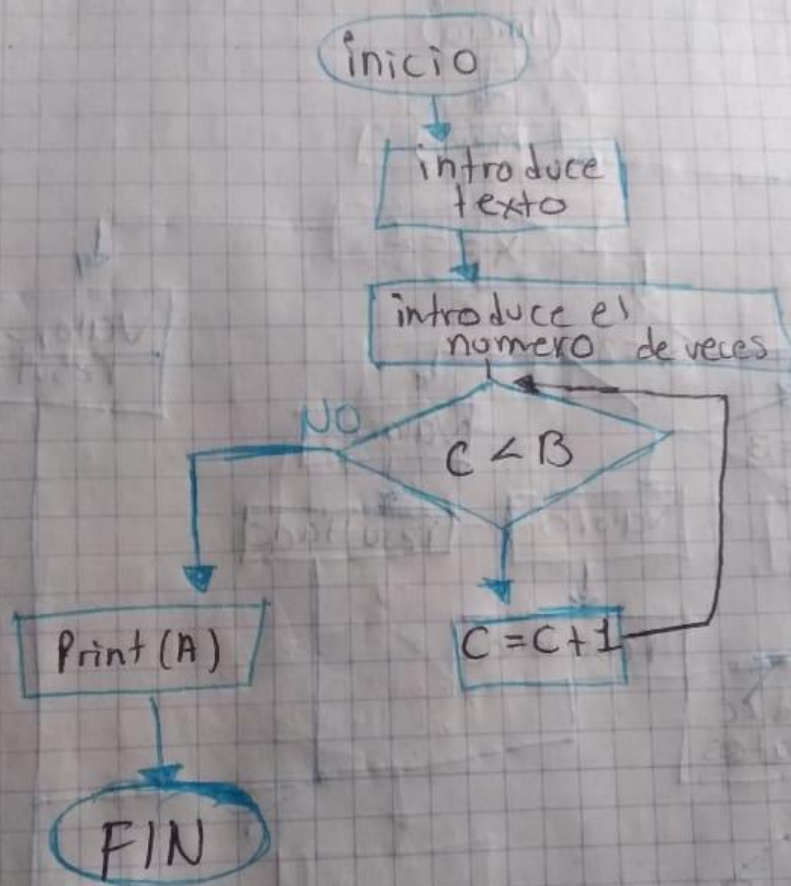 inicio
introduce
texto
introduce el
numero de veces
NO
C < B
Print (A)
C = C + 1
FIN